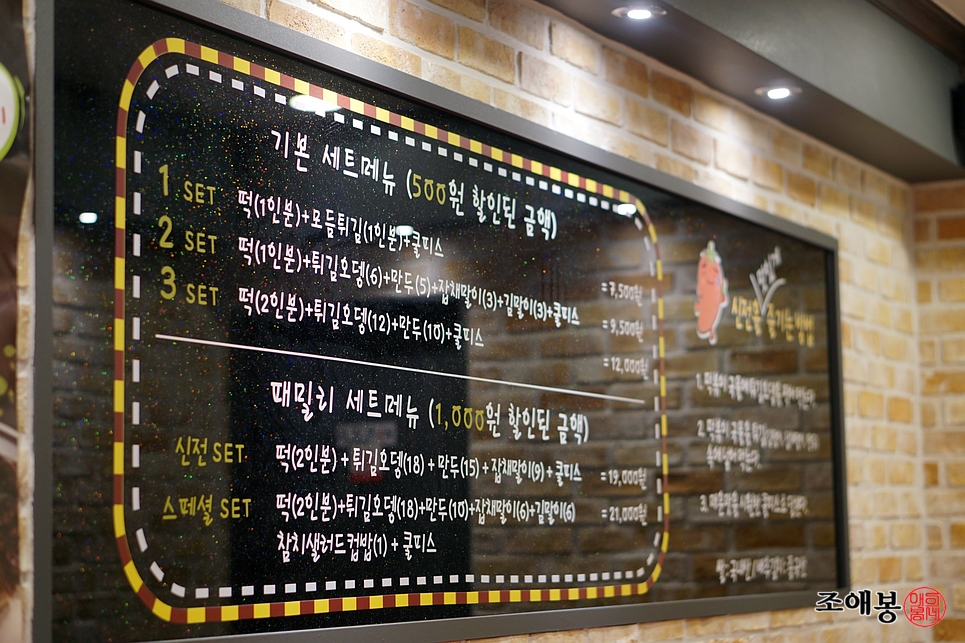 기본 세트메뉴 (500원 할인된 금액)
1 SET 떡(1인분)+모듬튀김(1인분)+쿨피스 =7,500원
2 SET 떡(1인분)+튀김오뎅(6)+만두(5)+잡채말이(3)+김말이(3)+쿨피스 =9,500원
3 SET 떡(2인분)+튀김오뎅(12)+만두(10)+쿨피스 =12,000원
패밀리 세트메뉴 (1,000원 할인된 금액)
신전 SET 떡(2인분) + 튀김오뎅(18) + 만두(15) + 잡채말이(9) + 쿨피스 =19,000원
스페셜 SET 떡(2인분)+튀김오뎅(18)+만두(10)+잡채말이(6)+김말이(6) =21,000원
참치샐러드컵밥(1) + 쿨피스
맛있게
신전을 즐기는 방법
1. 떡볶이 국물에 튀김오뎅을
2. 떡볶이 국물을
3. 매운맛을
쌀:국내산 / 배추김치:중국산
조애봉